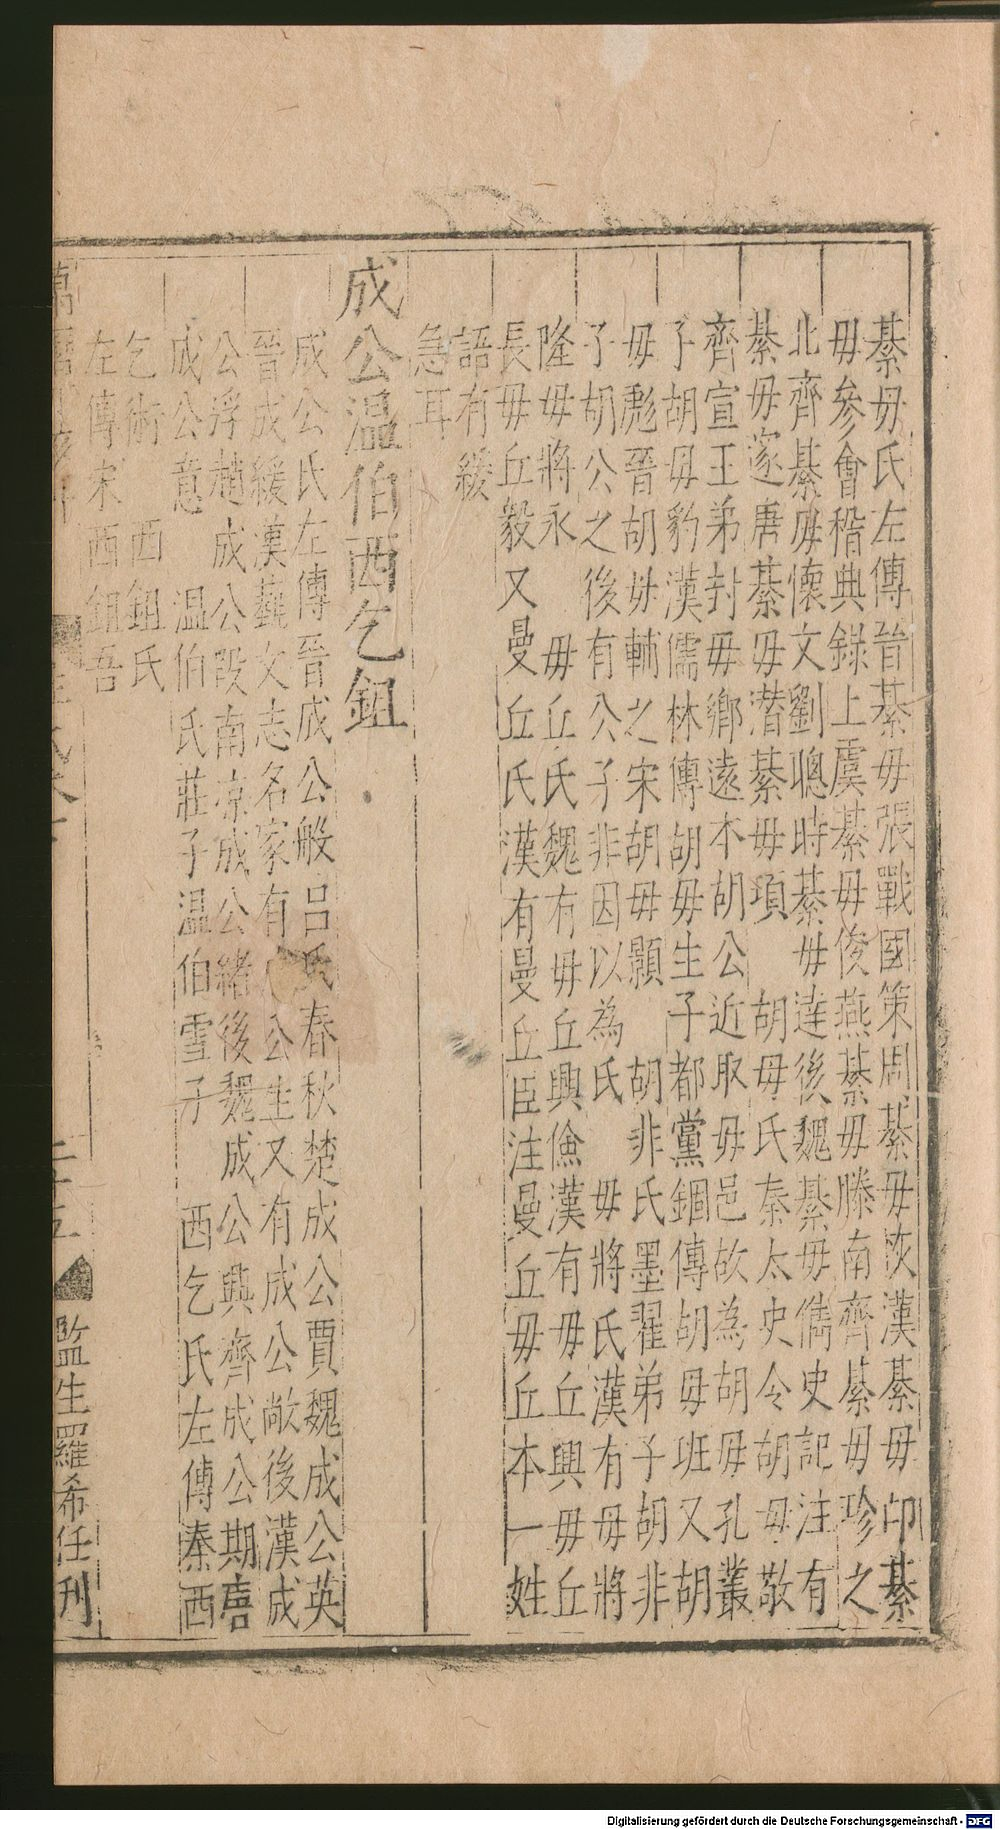 綦毋氏左傳晉綦毋張戰國策周綦毋恢漢綦毋印綦
毋參會稽典錄上虞綦毋俊燕綦毋滕南齊綦毋珍之
北齊綦毋懷文劉聰時綦毋達後魏綦毋儁史記注有
綦毋邃唐綦毋潛綦毋頊 胡毋氏秦太史令胡毋敬
齊宣王弟封毋鄉遠本胡公近取毋邑故為胡毋孔叢
子胡毋豹漢儒林傳胡毋生子都黨錮傳胡毋班又胡
毋彪晉胡毋輔之宋胡毋顥 胡非氏墨翟弟子胡非
子胡公之後有公子非因以為氏 毋將氏漢有毋將
隆毋將永 毋丘氏魏有毋丘興儉漢有毋丘興毋丘
長毋丘毅又曼丘氏漢有曼丘臣注曼丘毋丘本一姓
語有緩
急耳
成公溫伯西乞鉏
成公氏左傳晉成公般呂氏春秋楚成公賈魏成公英
晉成緩漢蓺文志名家有公生又有成公敞後漢成
公浮趙成公段南凉成公緒後魏成公興齊成公期唐
成公意 溫伯氏莊子溫伯雪子 西乞氏左傳秦西
乞術 西鉏氏
左傳宋西鉏吾
二十五
監生羅希任刊
Digitalisierung gefördert durch die Deutsche Forschungsgemeinschaft - DFG